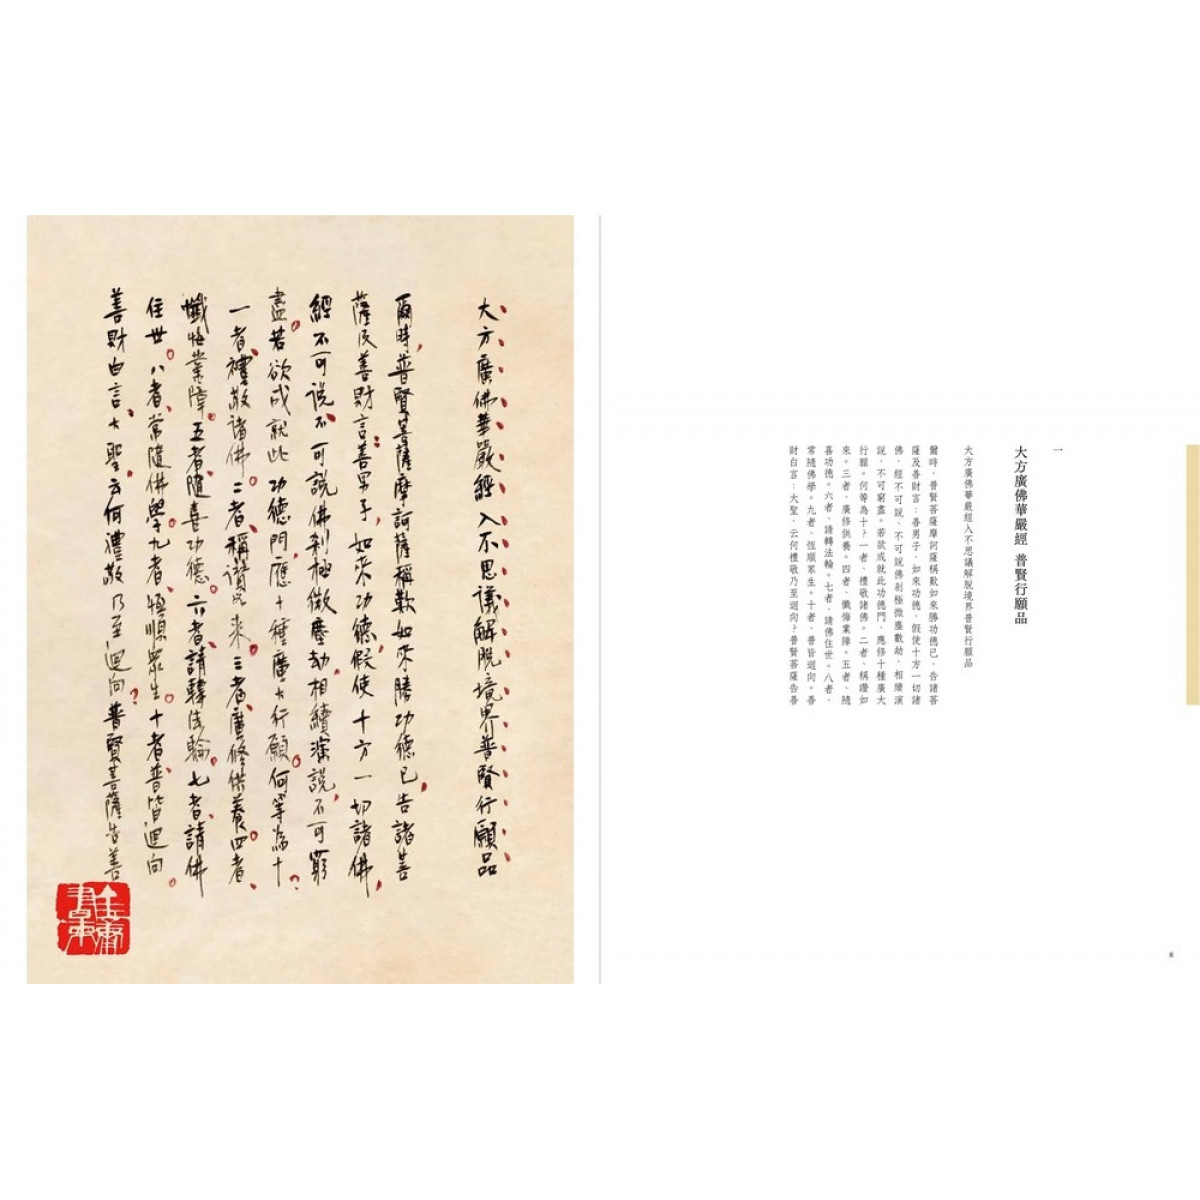 一
大方廣佛華嚴經 普賢行願品
大方廣佛華嚴經入不思議解脫境界普賢行願品
爾時，普賢菩薩摩訶薩稱歎如來勝功德已，告諸菩
薩及善財言：善男子，如來功德，假使十方一切諸
佛，經不可說、不可說佛剎極微塵數劫，相續演
說，不可窮盡。若欲成就此功德門，應修十種廣大
行願。何等為十？一者、禮敬諸佛。二者、稱讚如
來。三者、廣修供養。四者、懺悔業障。五者、隨
喜功德。六者、請轉法輪。七者、請佛住世。八者、
常隨佛學。九者、恆順眾生。十者、普皆迴向。善
財白言：大聖，云何禮敬乃至迴向？普賢菩薩告善
8
大方廣佛華嚴經入不思議解脫境界普賢行願品
爾時，普賢菩薩摩訶薩稱歎如來勝功德已，告諸菩
薩及善財言：善男子，如來功德，假使十方一切諸佛，
經不可說、不可說佛剎極微塵劫，相續演說，不可窮
盡。若欲成就此功德門，應十種廣大行願。何等為十？
一者、禮敬諸佛。二者、稱讚如來。三者、廣修供養。四者、
懺悔業障。五者、隨喜功德。六者、請轉法輪。七者、請佛
住世。八者、常隨佛學。九者、恆順眾生。十者、普皆迴向。
善財白言：大聖，云何禮敬乃至迴向？普賢菩薩告善